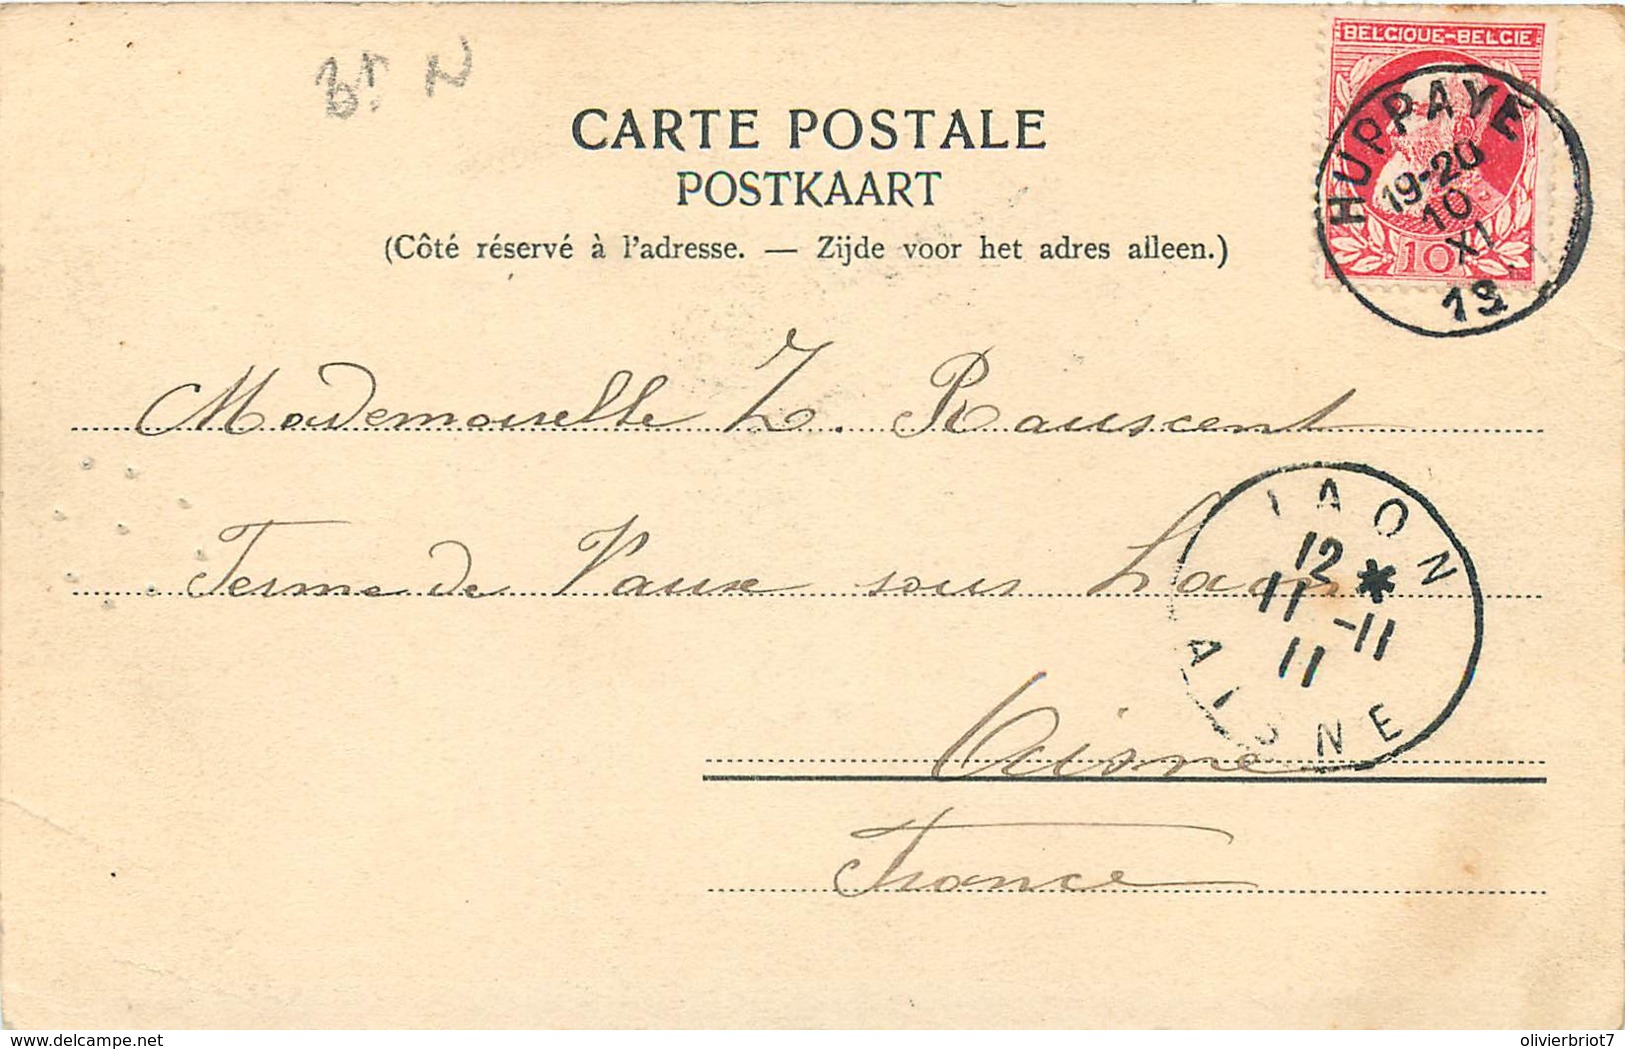 Bt. N
BELGIQUE-BELGIE
HUPPAYE
19-20
10
XI
19
10
CARTE POSTALE
POSTKAART
(Côté réservé à l'adresse. — Zijde voor het adres alleen.)
Mademoiselle Z. Rauscent
Ferme de Vaux sous Laon
LAON
12 *
11 -11
11
AISNE
Aisne
France
delcampe.net
olivierbriot7